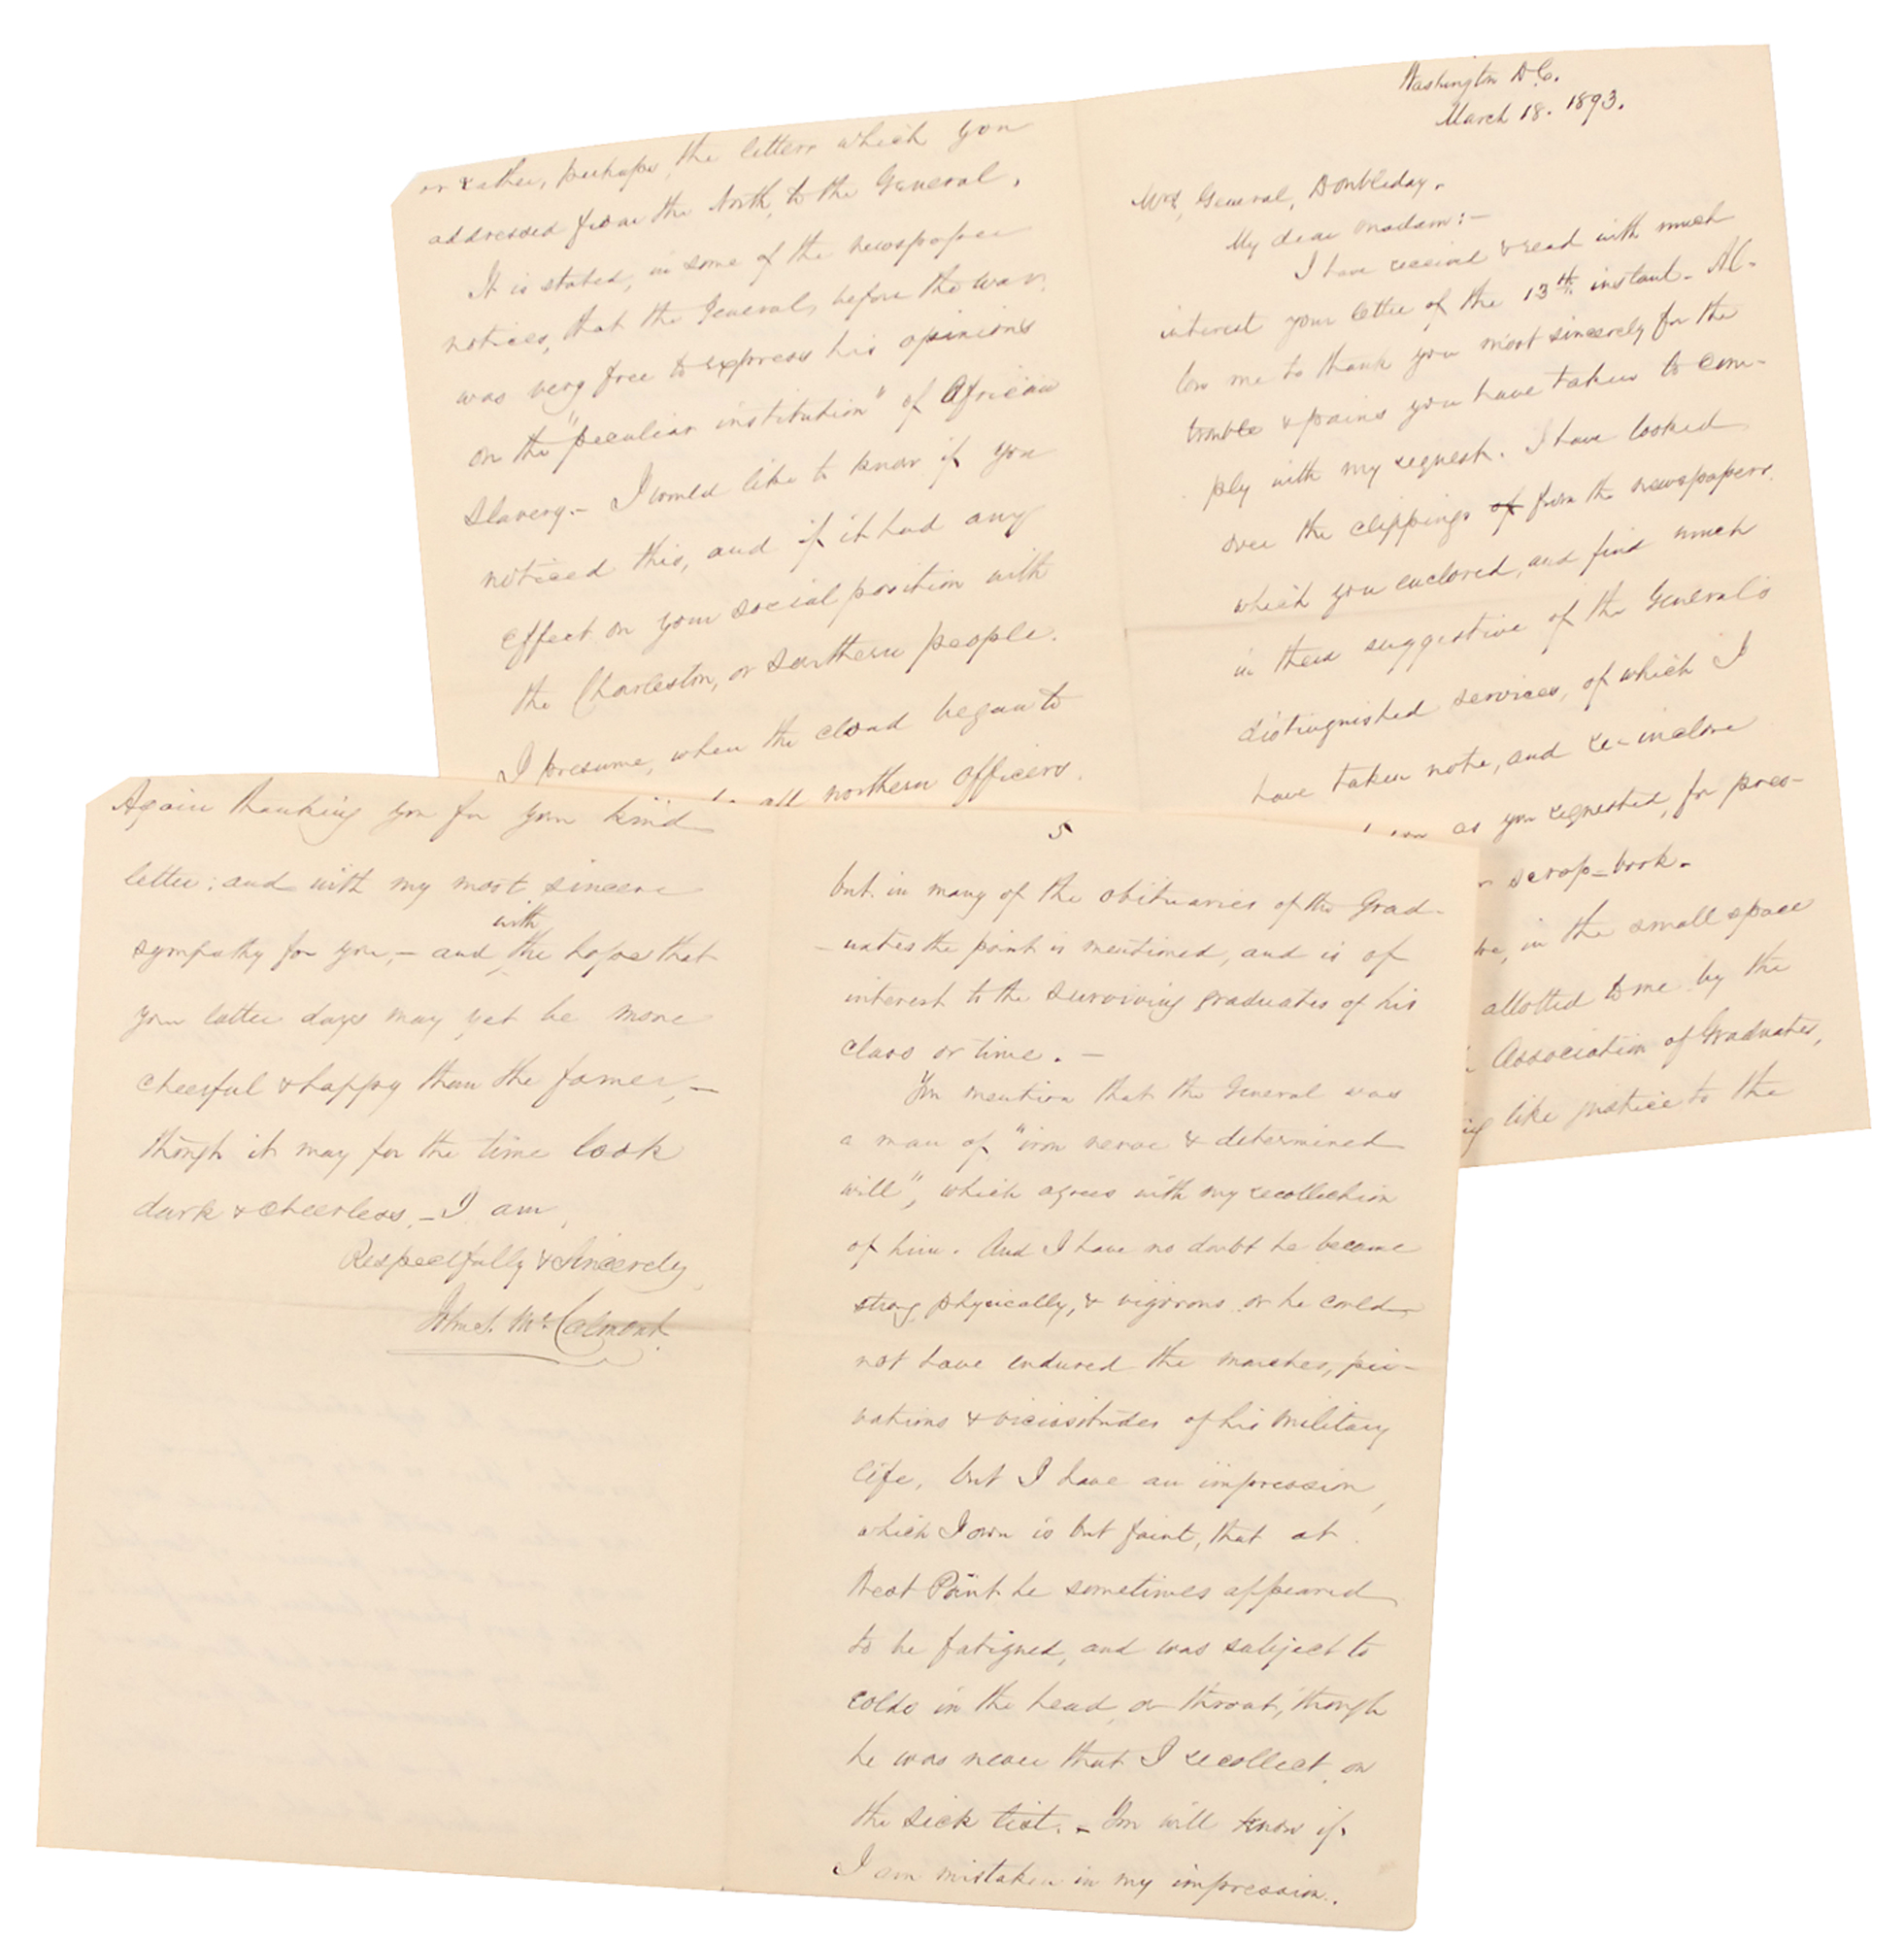 Washington D.C.
March 18. 1893.
Mrs, General, Doubleday.
My dear madam:—
I have received & read with much
interest your letter of the 13th. instant. Al-
low me to thank you most sincerely for the
trouble & pains you have taken to com-
ply with my request. I have looked
over the clippings of from the newspapers.
which you enclosed, and find much
in them suggestive of the General's
distinguished services, of which I
have taken note, and re-inclose
as you requested, for pres-
scrap-book.
in the small space
allotted to me by the
Association of Graduates,
like justice to the
or rather, perhaps, the letters which you
addressed from the North, to the General.
It is stated, in some of the newspaper
notices, that the General, before the war,
was very free to express his opinions
on the "peculiar institution" of African
Slavery.- I would like to know if you
noticed this, and if it had any
effect on your social position with
the Charleston, or Southern people.
I presume, when the cloud began to
all northern officers.
5
but in many of the obituaries of the Grad-
-uates the point is mentioned, and is of
interest to the surviving graduates of his
class or time. —
You mention that the General was
a man of "iron nerve & determined
will", which agrees with my recollection
of him. And I have no doubt he became
strong physically, & vigorous or he could
not have endured the marches, pri-
vations & vicissitudes of his military
life, but I have an impression,
which I own is but faint, that at
West Point he sometimes appeared
to be fatigued, and was subject to
colds in the head, or throat, though
he was never that I recollect, on
the sick list. - You will know if
I am mistaken in my impression.
Again thanking you for your kind
letter; and with my most sincere
sympathy for you, — and with the hope that
your latter days may yet be more
cheerful & happy than the former, —
though it may for the time look
dark & cheerless. — I am,
Respectfully & Sincerely,
John S. McCalmont.